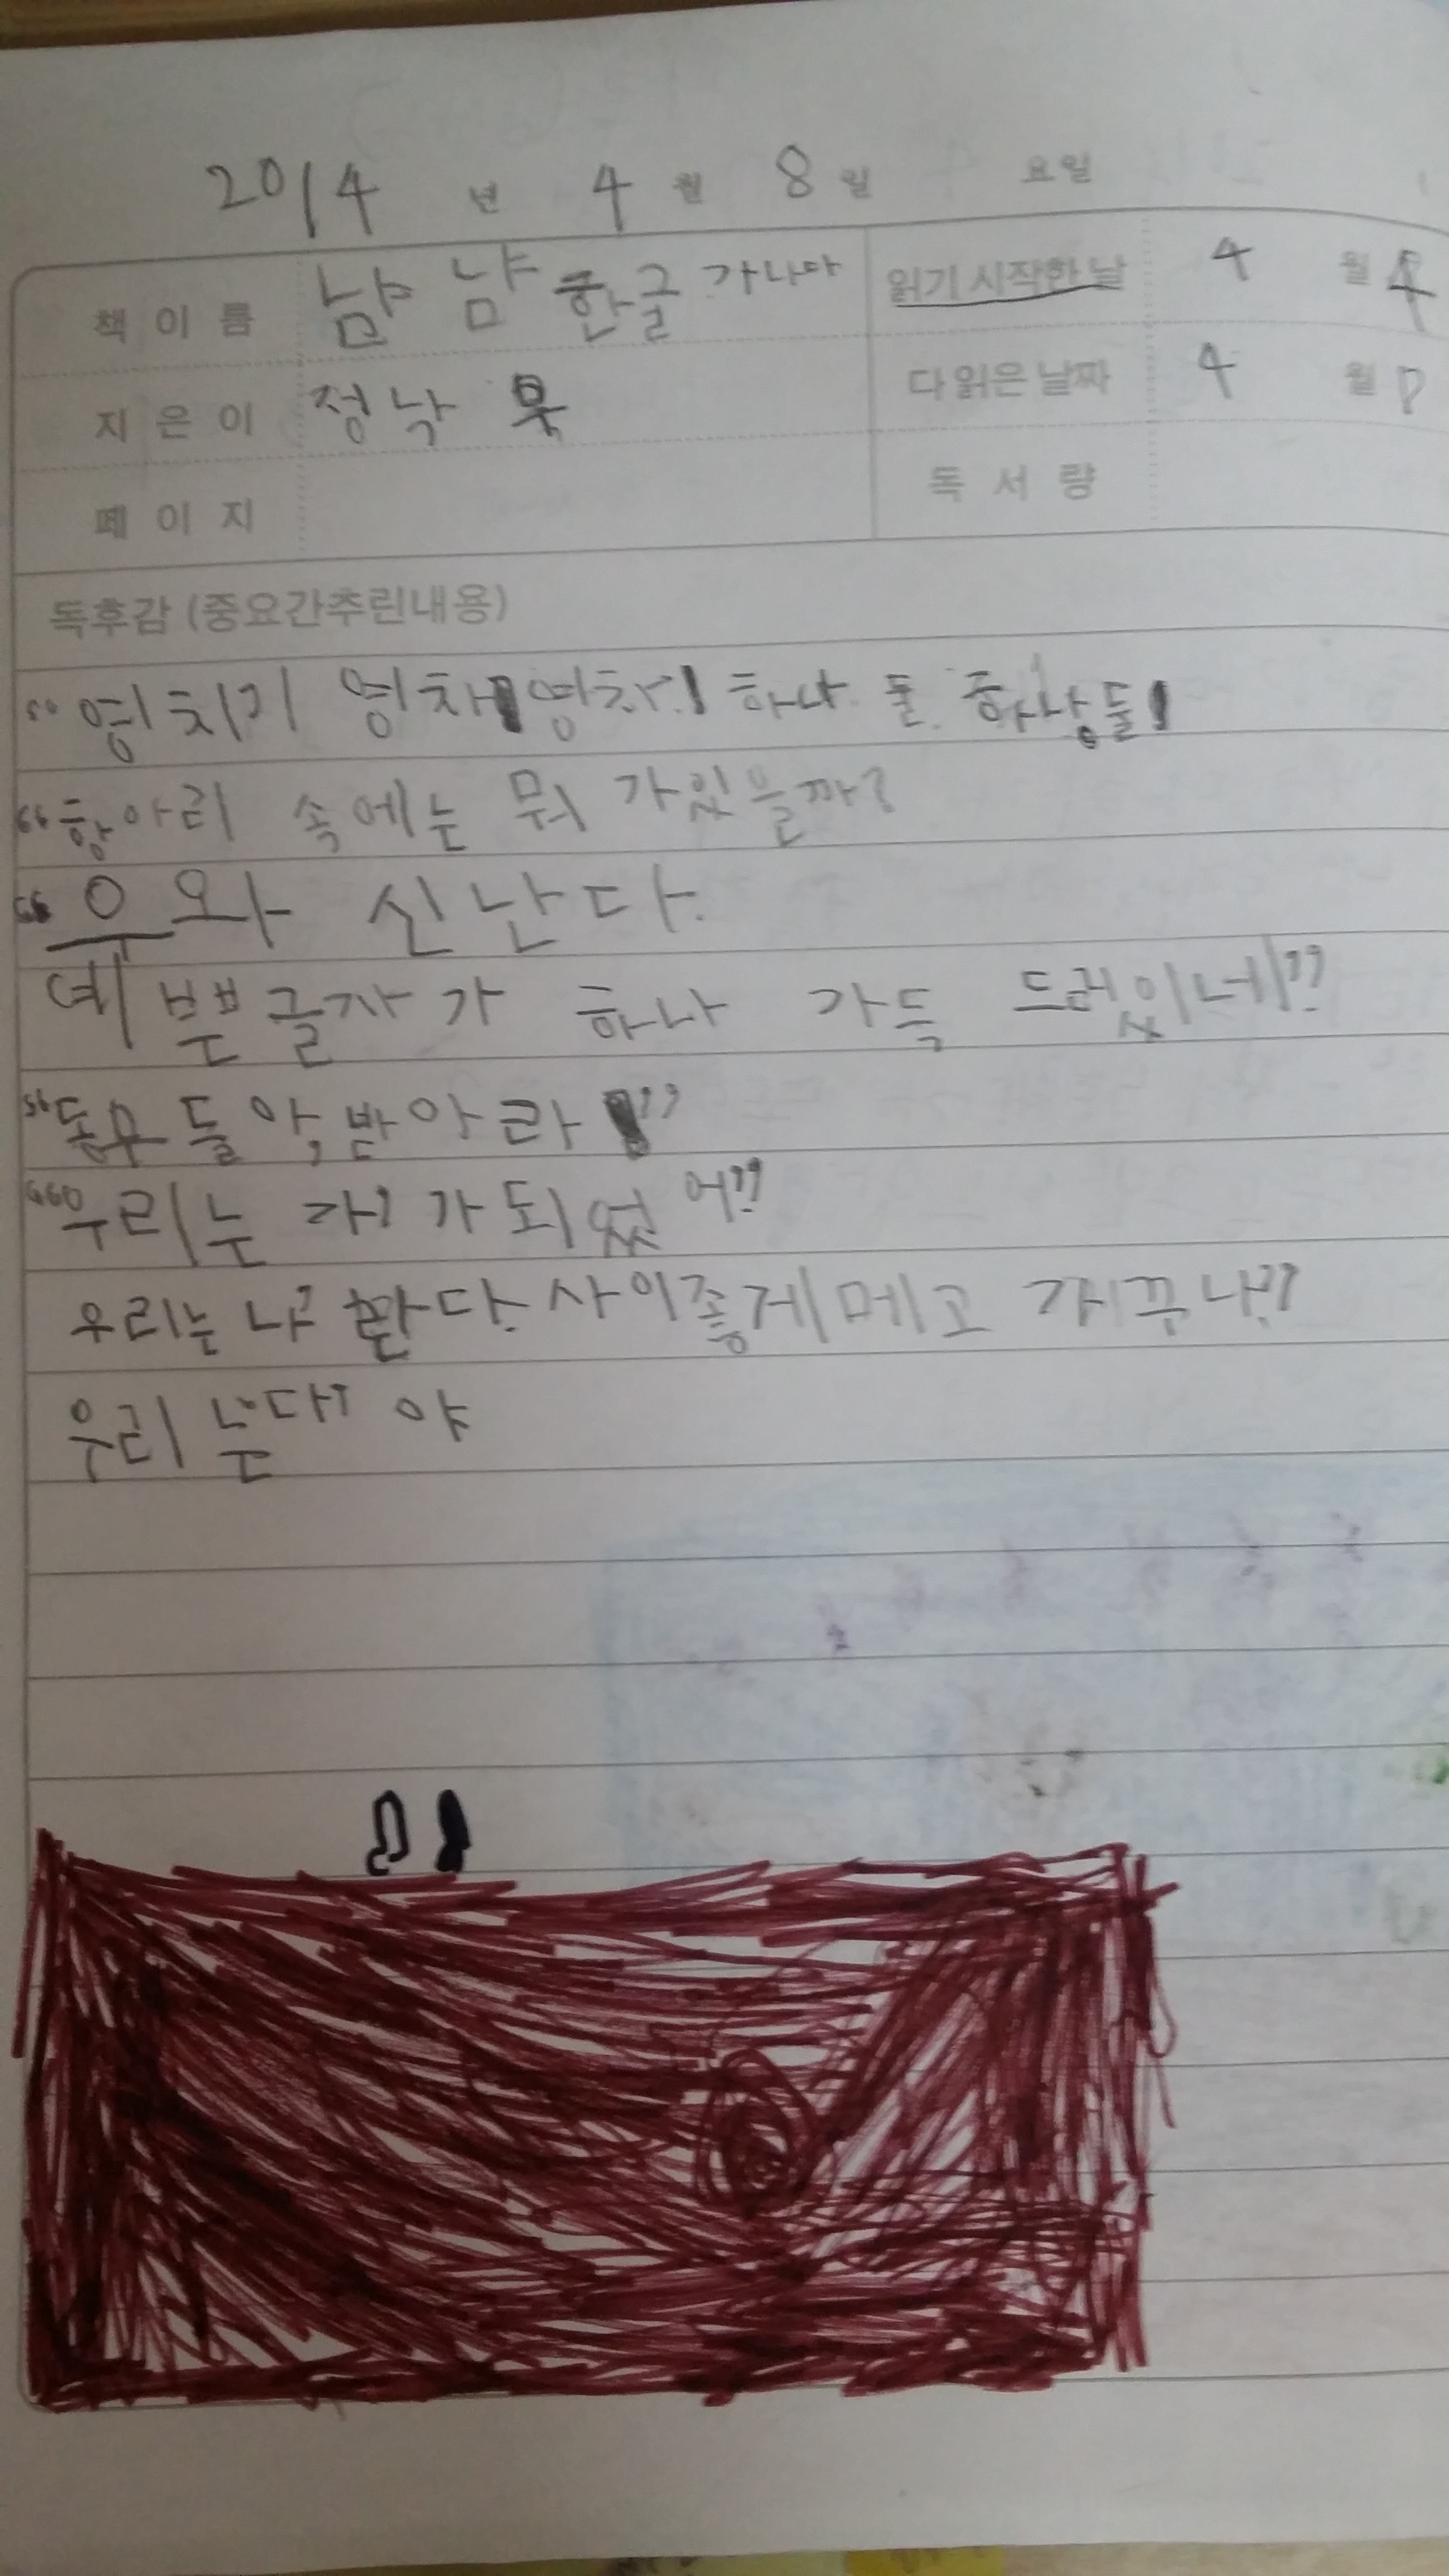 2014 년 4 월 8 일 요일
책 이 름 냠 냠 한글 가나다 읽기 시작한 날 4 월
지 은 이 정낙 묵 다 읽은 날짜 4 월
페 이 지 독 서 량
독후감 (중요간추린내용)
영치기 영차! 영차! 하나 둘 하낭둘!
항아리 속에는 뭐 가있을까?
우와 신난다.
예쁜글자가 하나 가득 드러있네"
동무들아, 받아라!"
우리는 가가되었어"
우리는 나란다. 사이좋게메고
우리는다야